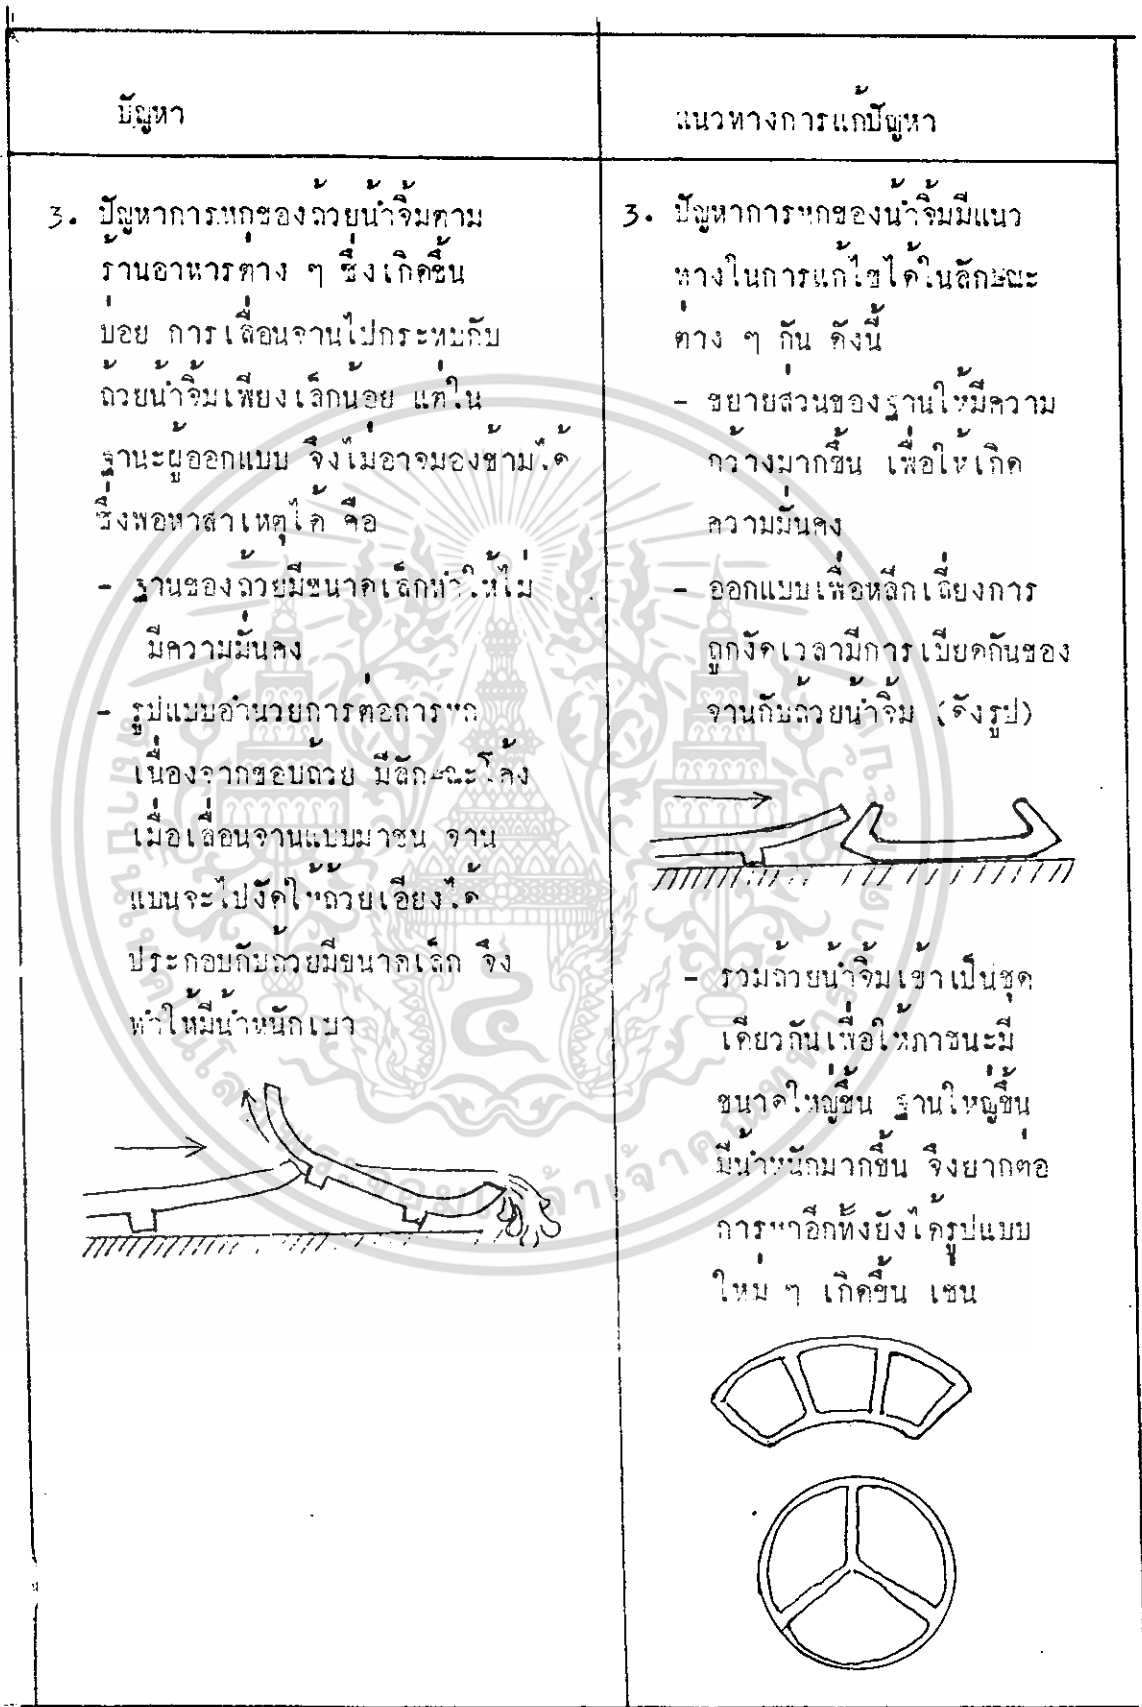 ปัญหา
แนวทางการแก้ปัญหา
3. ปัญหาการหกของถ้วยน้ำจิ้มตาม
ร้านอาหารต่าง ๆ ซึ่งเกิดขึ้น
บ่อย การเลื่อนจานไปกระทบกับ
ถ้วยน้ำจิ้มเพียงเล็กน้อย แต่ใน
ฐานะผู้ออกแบบ จึงไม่อาจมองข้ามได้
ซึ่งพอหาสาเหตุได้ คือ
- ฐานของถ้วยมีขนาดเล็กทำให้ไม่
มีความมั่นคง
- รูปแบบอำนวยการต่อการหก
เนื่องจากขอบถ้วย มีลักษณะโค้ง
เมื่อเลื่อนจานแบบมาชน จาน
แบนจะไปงัดให้ถ้วยเอียงได้
ประกอบกับถ้วยมีขนาดเล็ก จึง
ทำให้มีน้ำหนักเบา
3. ปัญหาการหกของน้ำจิ้มมีแนว
ทางในการแก้ไขได้ในลักษณะ
ต่าง ๆ กัน ดังนี้
- ขยายส่วนของฐานให้มีความ
กว้างมากขึ้น เพื่อให้เกิด
ความมั่นคง
- ออกแบบเพื่อหลีกเลี่ยงการ
ถูกงัดเวลามีการเบียดกันของ
จานกับถ้วยน้ำจิ้ม (ดังรูป)
- รวมถ้วยน้ำจิ้มเข้าเป็นชุด
เดียวกันเพื่อให้ภาชนะมี
ขนาดใหญ่ขึ้น ฐานใหญ่ขึ้น
มีน้ำหนักมากขึ้น จึงยากต่อ
การหกอีกทั้งยังได้รูปแบบ
ใหม่ ๆ เกิดขึ้น เช่น